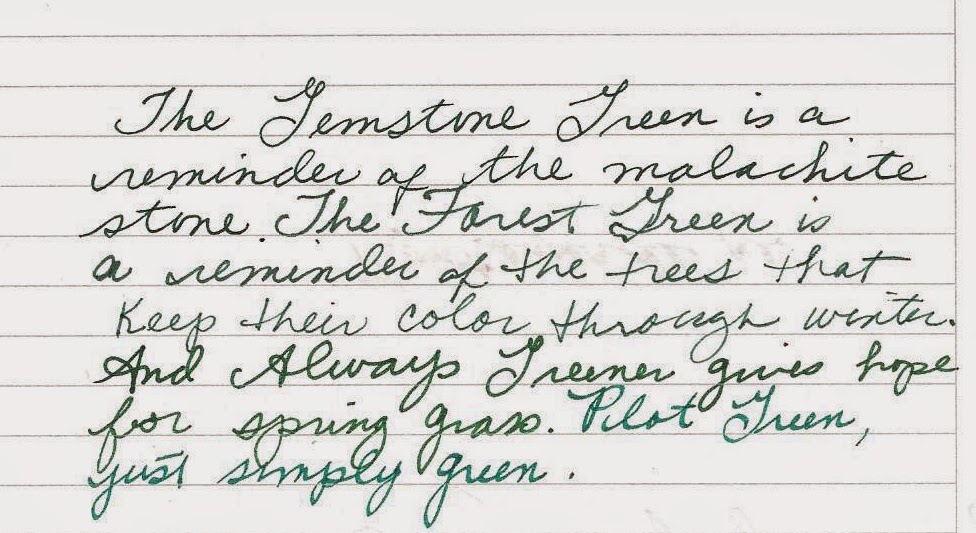 The Gemstone Green is a
reminder of the malachite
stone. The Forest Green is
a reminder of the trees that
keep their color through winter.
And Always Greener gives hope
for spring grass. Pilot Green,
just simply green.